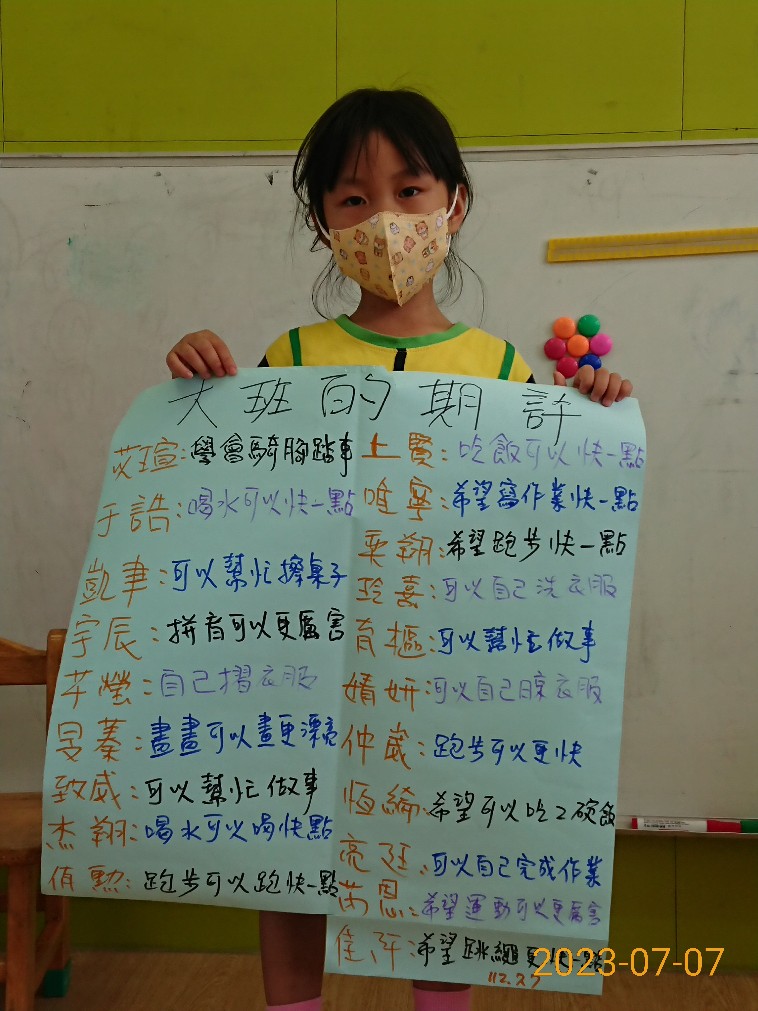 大班的期許
苡瑄:學會騎腳踏車
于誥:喝水可以快一點
凱聿:可以幫忙擦桌子
宇辰:拼音可以更厲害
芊瑩:自己摺衣服
旻蓁:畫畫可以畫更漂亮
致威:可以幫忙做事
杰翔:喝水可以喝快點
侑勲:跑步可以跑快一點
上賢:吃飯可以快一點
唯寧:希望寫作業快一點
奕翔:希望跑步快一點
玲熹:可以自己洗衣服
育樞:可以幫忙做事
婧妍:可以自己晾衣服
仲崴:跑步可以更快
恆綸:希望可以吃2碗飯
亮廷:可以自己完成作業
芮恩:希望運動可以更厲害
佳玗:希望跳繩更快一點
112.7.7
2023-07-07